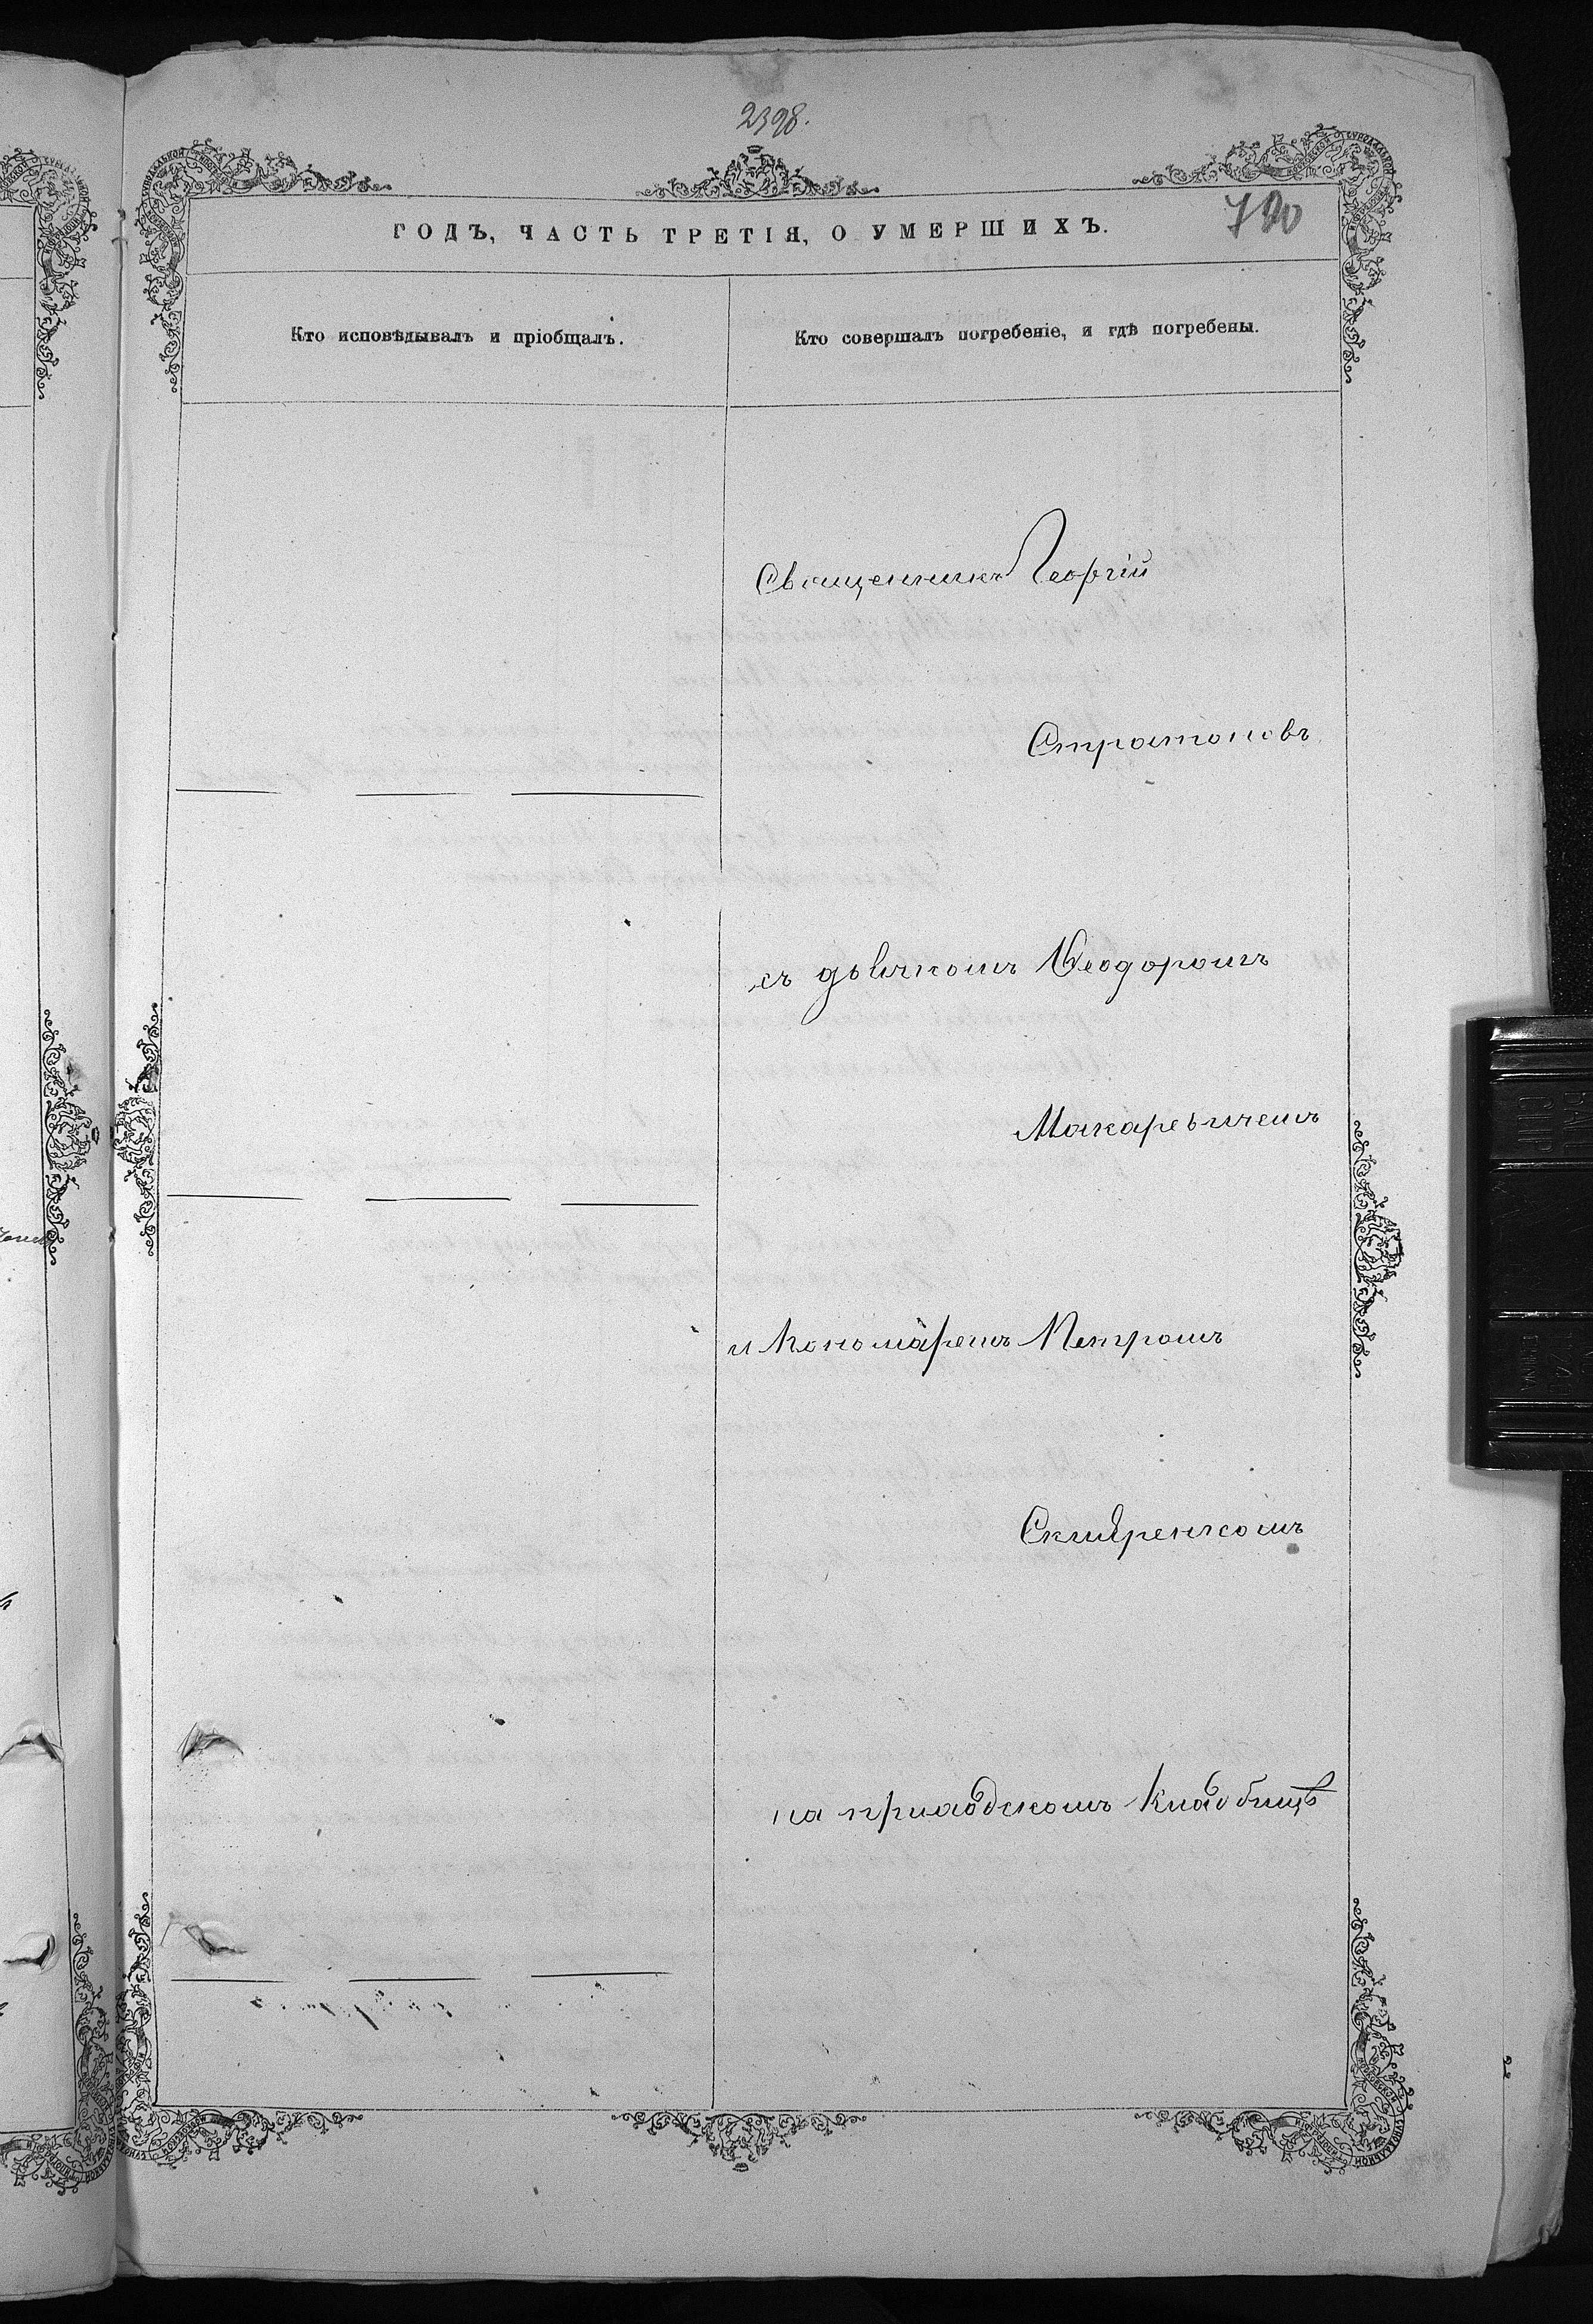 2398.
ГОДЪ, ЧАСТЬ ТРЕТІЯ, О УМЕРШИХЪ.
Кто исповѣдывалъ и пріобщалъ.
Кто совершалъ погребеніе, и гдѣ погребены.
Священникъ Георгій
Стратоновъ
съ дьячкомъ Ѳеодоромъ
Макаревичемъ
и Пономаремъ Петромъ
на приходскомъ кладбищѣ